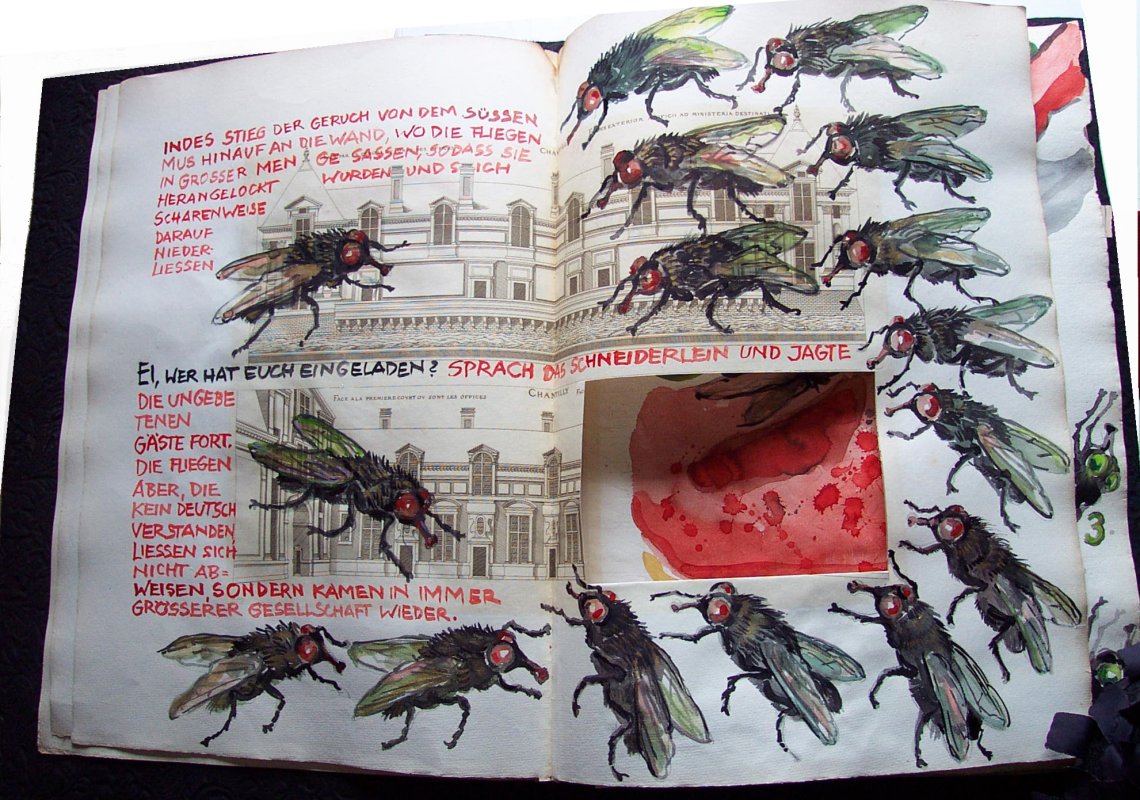 INDES STIEG DER GERUCH VON DEM SÜSSEN
MUS HINAUF AN DIE WAND, WO DIE FLIEGEN
IN GROSSER MEN GE SASSEN, SODASS SIE
HERANGELOCKT WURDEN UND SICH
SCHARENWEISE
DARAUF
NIEDER-
LIESSEN
AD MINISTERIA DESTINAT
EI, WER HAT EUCH EINGELADEN? SPRACH DAS SCHNEIDERLEIN UND JAGTE
DIE UNGEBE
TENEN
GÄSTE FORT.
DIE FLIEGEN
ABER, DIE
KEIN DEUTSCH
VERSTANDEN,
LIESSEN SICH
NICHT AB=
WEISEN, SONDERN KAMEN IN IMMER
GRÖSSERER GESELLSCHAFT WIEDER.
FACE A LA PREMIERE COVRT OV SONT LES OFFICES
CHANTILLY
3